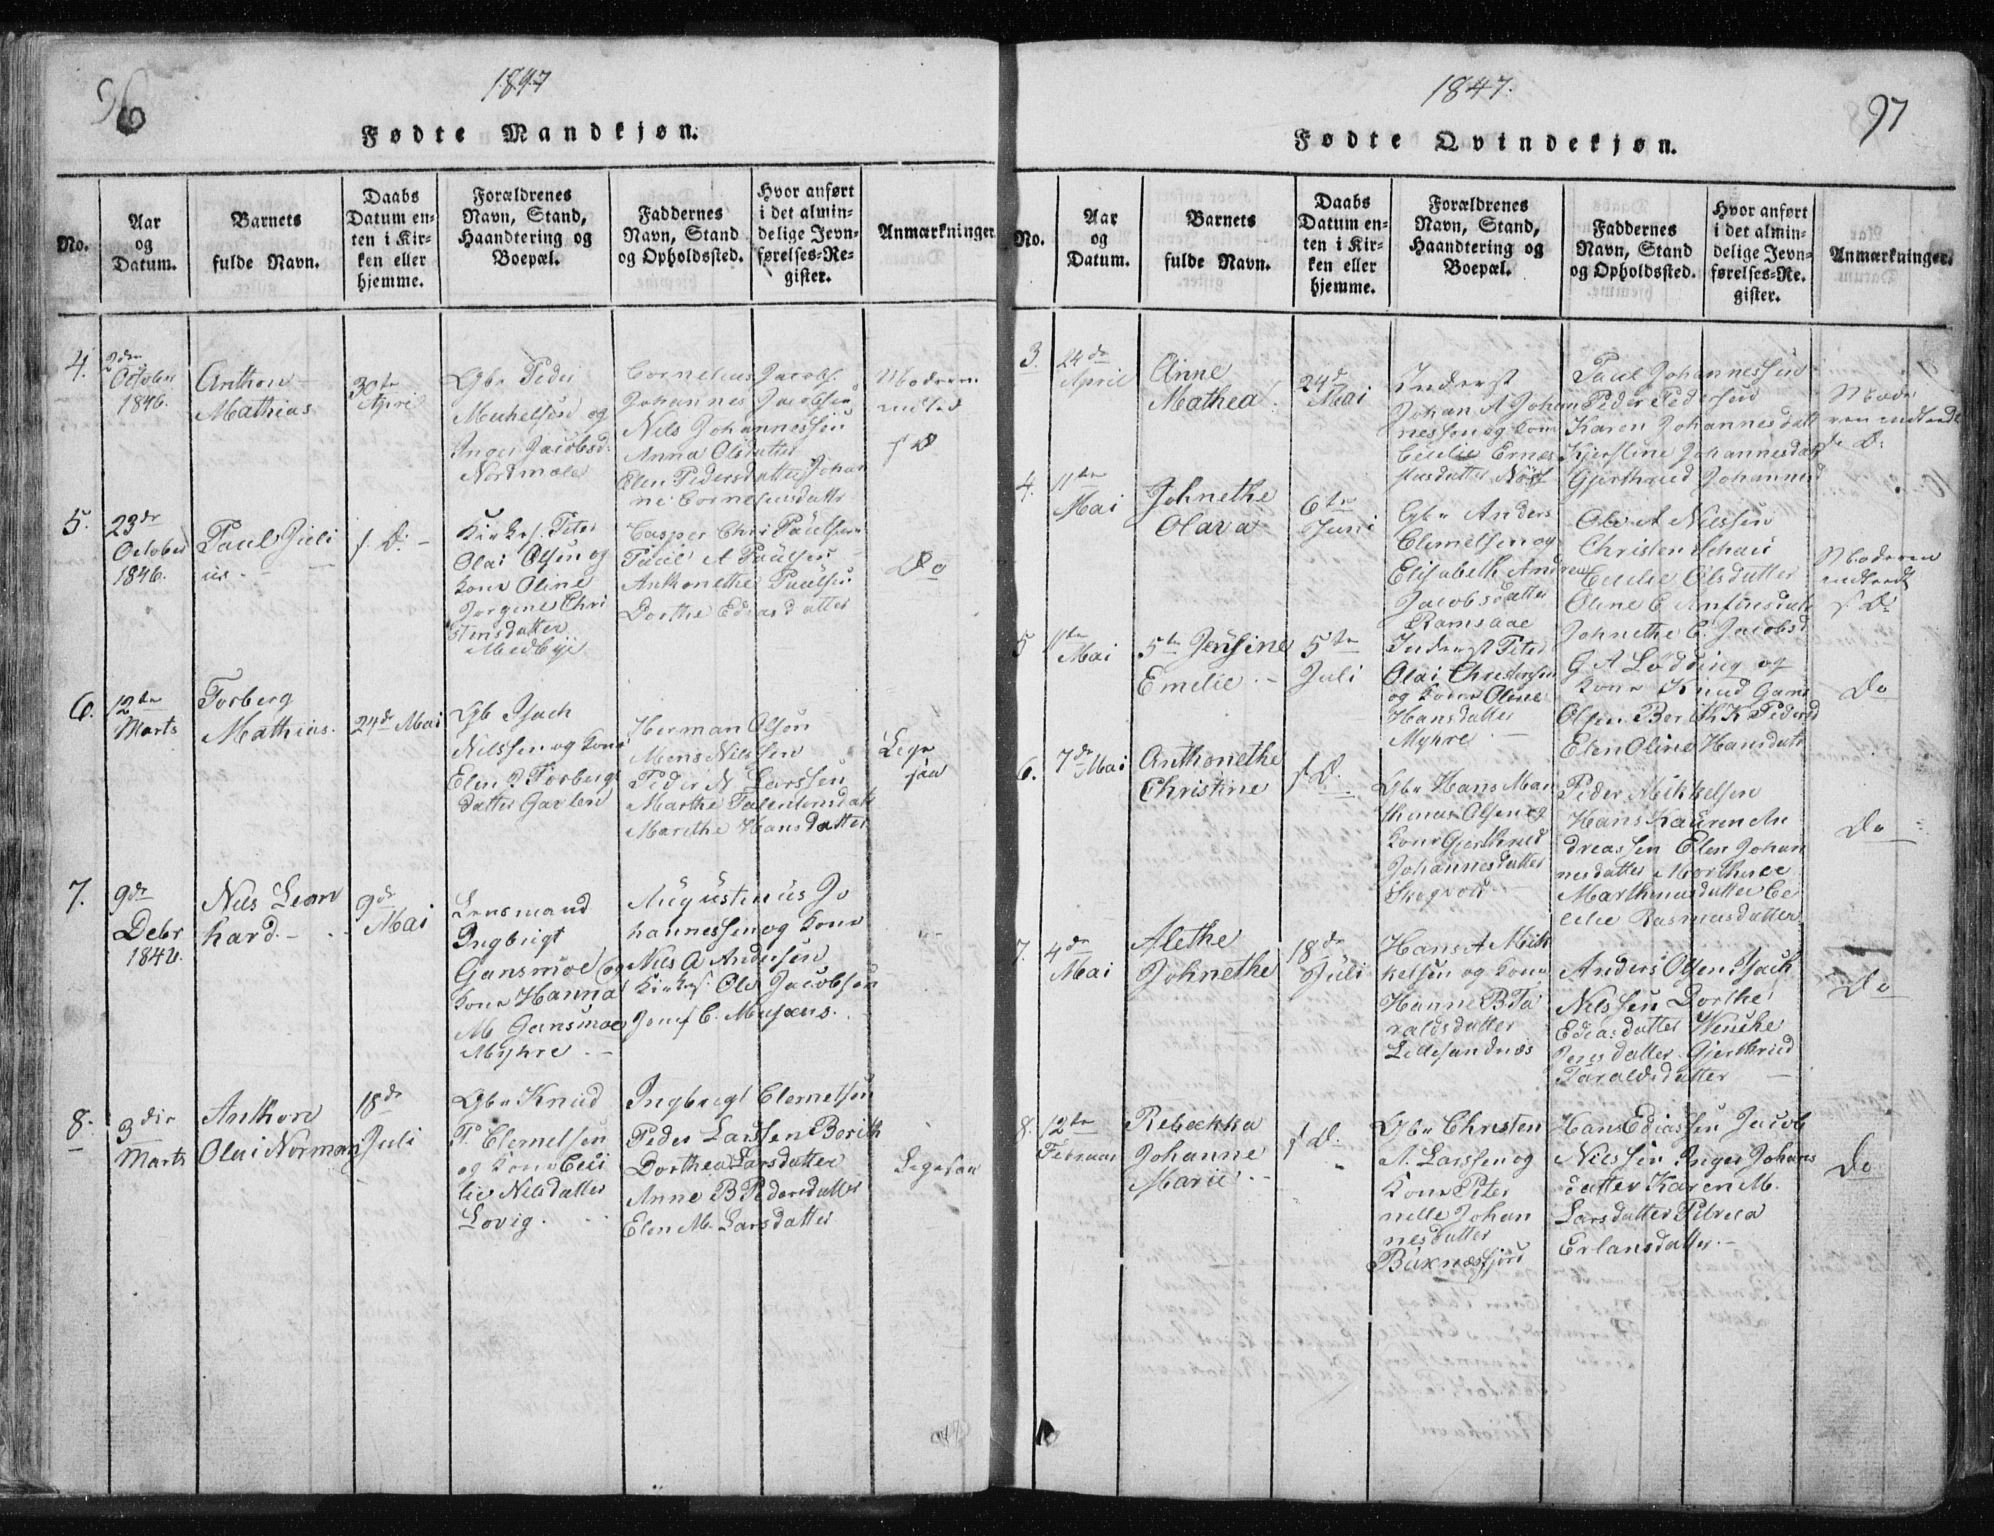 96
1847
Fødte Mandkjøn.
No.
Aar
og
Datum.
Barnets
fulde Navn.
Daabs
Datum en-
ten i Kir-
ken eller
hjemme.
Forældrenes
Navn, Stand,
Haandtering og
Boepæl.
Faddernes
Navn, Stand
og Opholdssted.
Hvor anført
i det almin-
delige Jevn-
førelses-Re-
gister.
Anmærkninger.
4.
October
1846.
Anthon
Mathias
April
Peder
Michelsen og
Inger Jacobsd.
Cornelius Jacobs.
Johannes Jacobsen
Nils Johannessen
Anna Olsdatter
Elen Pedersdatter Johan
ne Corneliusdattr
Moderen
f D
5.
23de
October
1846.
Paul Juli
us.
f. D.
Peter
Olai Olsen og
Kone Oline
Jørgene Chri
stinsdatter
Medbye
Casper Chr. Paulsen
Paul A Paulsen
Anthonethe Paulsen
Dorthe Ediasdatter
Do
6.
12te
Marts
Torberg
Mathias.
24de Mai
Gb Isach
Nilssen og Kone
Elen T. Torbergs
datter
Herman Olsen
Mons Nilssen
Peder N Larssen
Marthe
Marethe Hansdatter
7.
9de
Debr
1846.
Nils Leon
hard.
9de
Mai
Lensmand
Ingbrigt
Gansmoe og
Kone Hanna
M Gansmoe
Myhre
Augustinus Jo
hannessen og Kone
Nils A Andersen
Ole Jacobsen
Josef C.
8.
3die
Marts
Anthon
Olai Normann
18de
Juli
Gbr Knud
P. Clemetsen
og Kone Ceci
lie Nilsdatter
Løvig.
Ingbrigt Clemetsen
Peder Larssen Berith
Dorthea Larsdatter
Anne B Pedersdatter
Elen M. Larsdatter
97
1847.
Fødte Qvindekjøn.
No.
Aar
og
Datum.
Barnets
fulde Navn.
Daabs
Datum en-
ten i Kir-
ken eller
hjemme.
Forældrenes
Navn, Stand,
Haandtering og
Boepæl.
Faddernes
Navn, Stand
og Opholdssted.
Hvor anført
i det almin-
delige Jevn-
førelses-Re-
gister.
Anmærkninger.
3.
24de
April
Anne
Mathea
24de
Mai
Inderst
Johan A Johan
nessen og Kone
Cecilie
Paul Johannessen
Peder Pedersen
Karen Johannesdatt
Kjerstine Johannesdatt
Gjerthrud Johannesd
Mode
ren
f. D.
4.
11te
Mai
Johnethe
Olava
6te
Juni
Gbr Anders
Clemetsen og
Elisabeth Andrea
Jacobsdatter
Ramsaae
Ole A Nilssen
Christen
Cecilie Olsdatter
Oline C
Johnethe C. Jacobsd
Moderen
f D.
5
11te
Mai
5te Jensine
Emelie
5te
Juli
Inderst Peter
Olai Christensen
og Kone Oline
Hansdatter
Myhre
G A Lødding og
Kone Knud Gans
Olsen Berith K Pedersd
Elen Oline Hansdatr
Do
6.
7de Mai
Anthonethe
Christine
f D.
Gbr Hans Mar
thinus Olsen og
Kone Gjerthrud
Johannesdatter
Skogvold
Peder Mikkelsen
Hans Lauren An
dreassen Elen Johan
nesdatter
Marthinusdatter Ce
cilie Rasmusdatter
Do
7.
4de
Mai
Alethe
Johnethe
18de
Juli
Hans A Mik
kelsen og Kone
Hanne B Ta
raldsdatter
Lillesandnæs
Anders Olsen Isach
Nilssen Dorthe
Ediasdatter Wenche
Jensdatter Gjerthrud
Taraldsdatter
Do
8.
12te
Februar
Rebekka
Johanne
Marie
f D.
Gbr Christen
A. Larssen og
Kone Peter
nelle Johan
nesdatter
Buxnæsfjord
Hans Ediassen Jacob
Nilssen Inger Johans
datter Karen M.
Larsdatter Petrea
Erlansdatter
Do